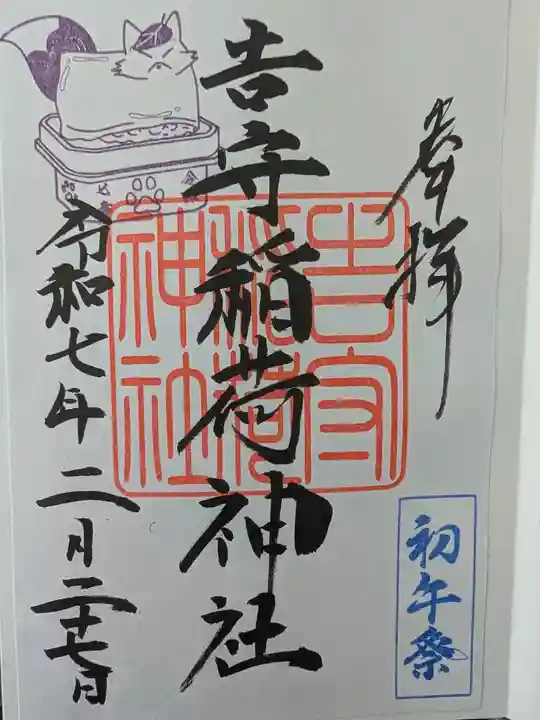 奉拝
初午祭
吉守稲荷神社
吉守
稲荷
神社
令和七年二月二十七日